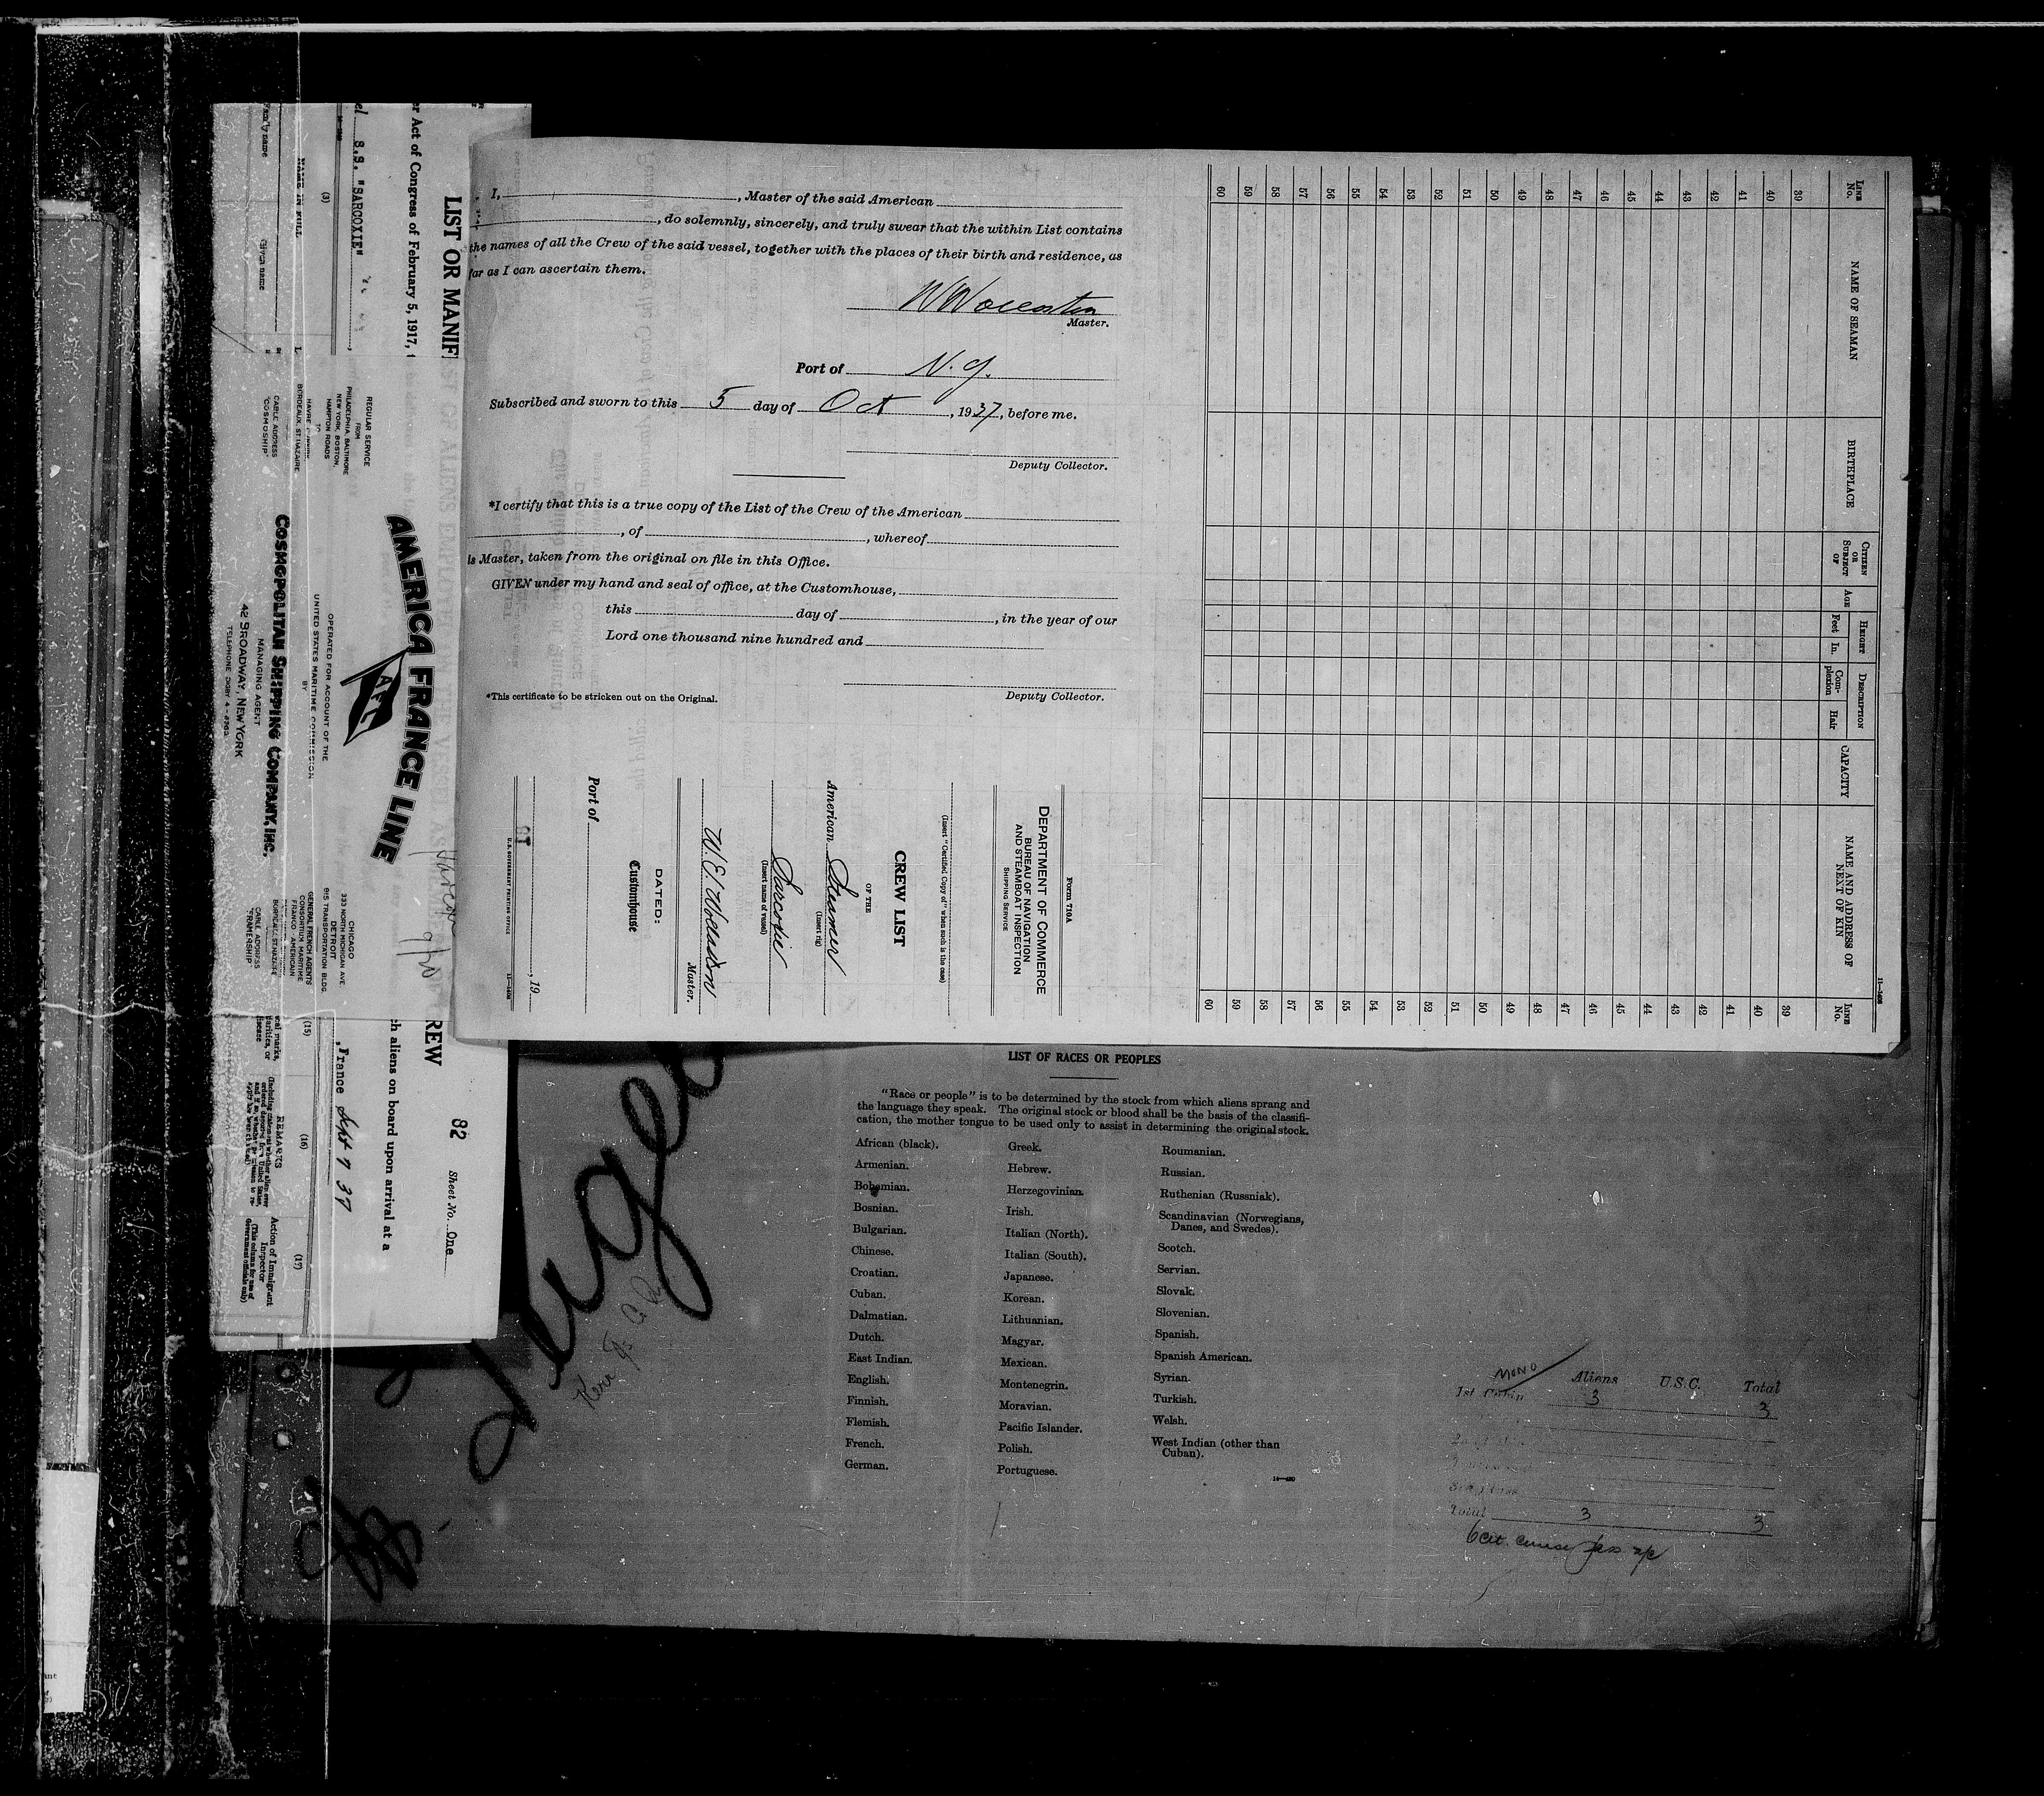 I, , Master of the said American
, do solemnly, sincerely, and truly swear that the within List contains
the names of all the Crew of the said vessel, together with the places of their birth and residence, as
far as I can ascertain them.
Master.
Port of N.Y.
Subscribed and sworn to this 5 day of Oct , 1937, before me.
Deputy Collector.
*I certify that this is a true copy of the List of the Crew of the American
, of , whereof
is Master, taken from the original on file in this Office.
GIVEN under my hand and seal of office, at the Customhouse,
this day of , in the year of our
Lord one thousand nine hundred and
Deputy Collector.
*This certificate to be stricken out on the Original.
Form 710A
DEPARTMENT OF COMMERCE
BUREAU OF NAVIGATION
AND STEAMBOAT INSPECTION
SHIPPING SERVICE
(Insert "Certified Copy of" when such is the case)
CREW LIST
OF THE
American Steamer
(Insert rig)
Sarcoxie
(Insert name of vessel)
Master.
DATED:
Customhouse
Port of
, 19
U.S. GOVERNMENT PRINTING OFFICE
11-1408
LINE No.
NAME OF SEAMAN
BIRTHPLACE
CITIZEN OR SUBJECT OF
AGE
HEIGHT
Feet
In.
DESCRIPTION
Complexion
Hair
CAPACITY
NAME AND ADDRESS OF NEXT OF KIN
LINE No.
39 39
40 40
41 41
42 42
43 43
44 44
45 45
46 46
47 47
48 48
49 49
50 50
51 51
52 52
53 53
54 54
55 55
56 56
57 57
58 58
59 59
60 60
LIST OR MANIF
REW
82
Sheet No. One
er Act of Congress of February 5, 1917, t
ch aliens on board upon arrival at a
el S.S. "SARCOXIE"
, France Sept 7 37
(3)
NAME IN FULL
Family name
Given name
(15)
(16)
REMARKS
(17)
Action of Immigrant Inspector
(This column for use of Government officials only)
REGULAR SERVICE
FROM
PHILADELPHIA, BALTIMORE
NEW YORK, BOSTON,
HAMPTON ROADS
TO
BORDEAUX, ST. NAZAIRE
CABLE ADDRESS
"COSMOSHIP"
AMERICA FRANCE LINE
A.F.L.
9/20
OPERATED FOR ACCOUNT OF THE
UNITED STATES MARITIME COMMISSION
BY
COSMOPOLITAN SHIPPING COMPANY, INC.
MANAGING AGENT
42 BROADWAY, NEW YORK
CHICAGO
333 NORTH MICHIGAN AVE.
DETROIT
915 TRANSPORTATION BLDG.
GENERAL FRENCH AGENTS
CONSORTIUM MARITIME
FRANCO-AMERICAIN
CABLE ADDRESS
LIST OF RACES OR PEOPLES
"Race or people" is to be determined by the stock from which aliens sprang and
the language they speak. The original stock or blood shall be the basis of the classifi-
cation, the mother tongue to be used only to assist in determining the original stock.
African (black).
Armenian.
Bohemian.
Bosnian.
Bulgarian.
Chinese.
Croatian.
Cuban.
Dalmatian.
Dutch.
East Indian.
English.
Finnish.
Flemish.
French.
German.
Greek.
Hebrew.
Herzegovinian.
Irish.
Italian (North).
Italian (South).
Japanese.
Korean.
Lithuanian.
Magyar.
Mexican.
Montenegrin.
Moravian.
Pacific Islander.
Polish.
Portuguese.
Roumanian.
Russian.
Ruthenian (Russniak).
Scandinavian (Norwegians,
Danes, and Swedes).
Scotch.
Servian.
Slovak.
Slovenian.
Spanish.
Spanish American.
Syrian.
Turkish.
Welsh.
West Indian (other than
Cuban).
Mono Aliens U.S.C. Total
1st Cabin 3 3
Total 3 3